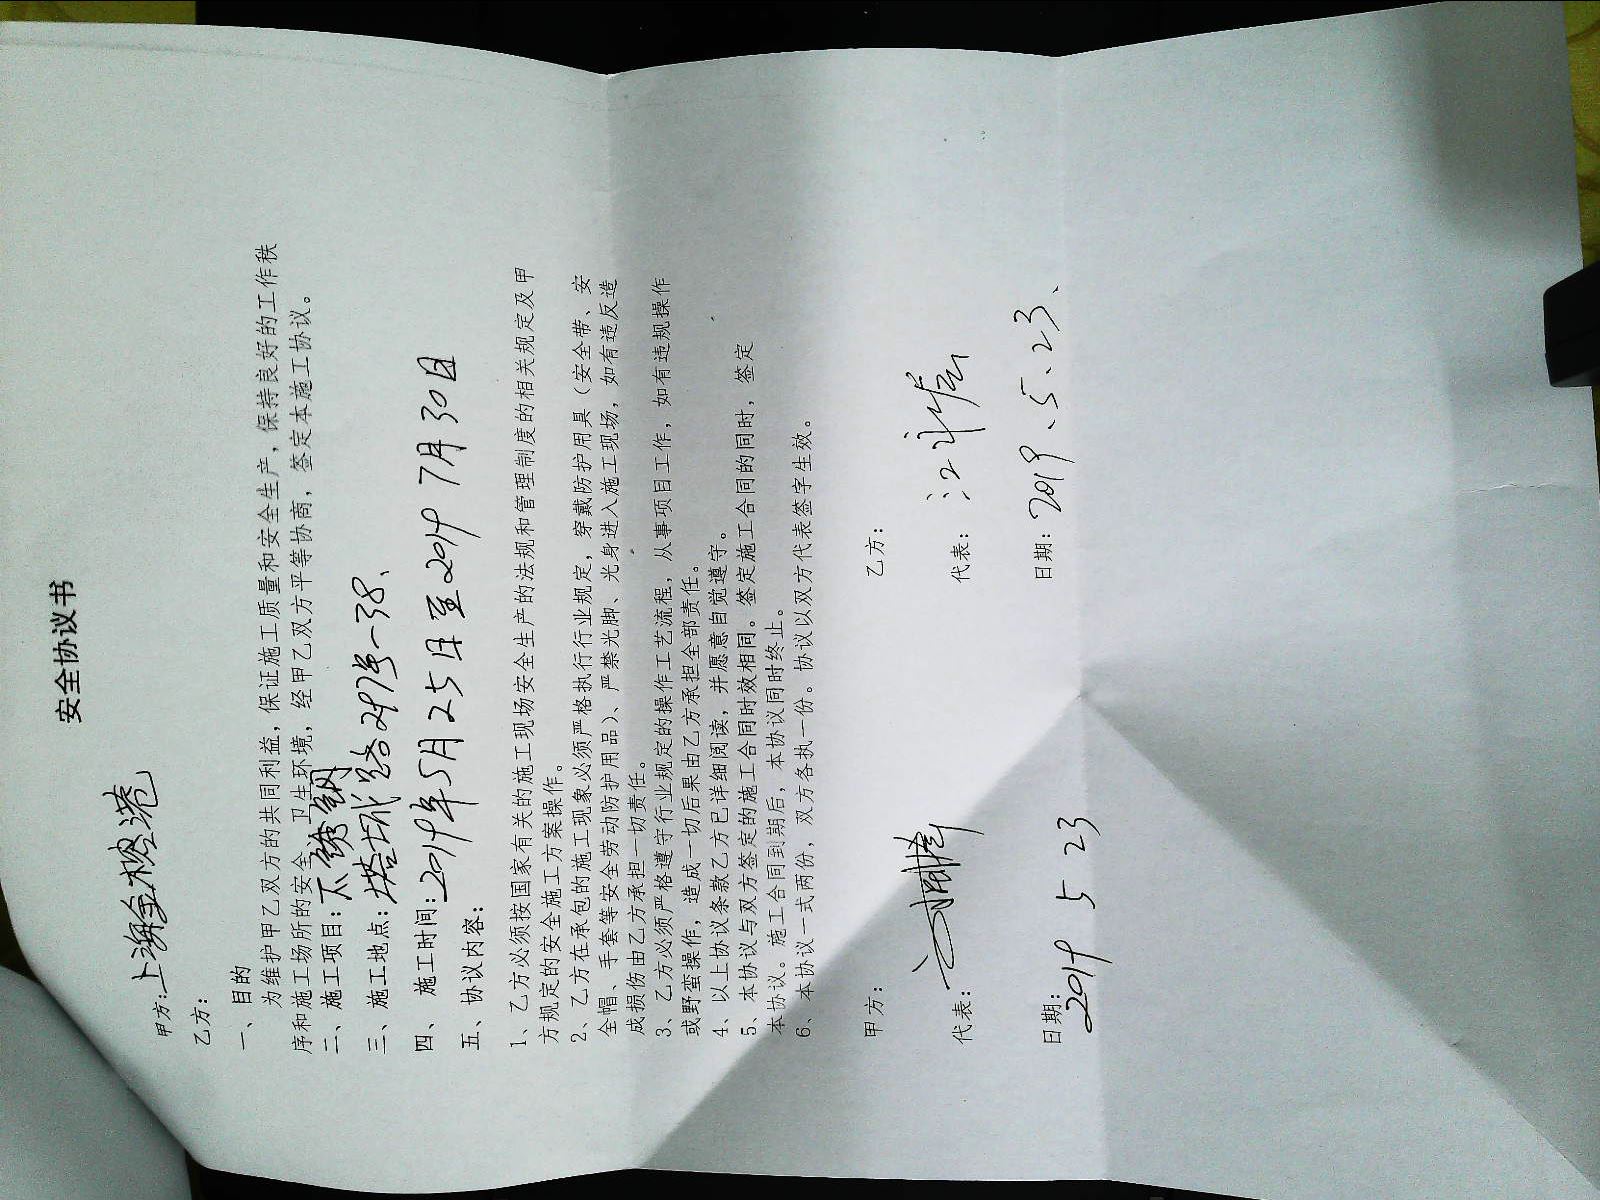 安全协议书
甲方：上海金
乙方：
一、目的
为维护甲乙双方的共同利益，保证施工质量和安全生产，保持良好的工作秩
序和施工场所的安全、卫生环境，经甲乙双方平等协商，签定本施工协议。
二、施工项目：不锈钢
三、施工地点：塔城路297号-38、
四、施工时间：2019年5月25日至2019 7月30日
五、协议内容：
1、乙方必须按国家有关的施工现场安全生产的法规和管理制度的相关规定及甲
方规定的安全施工方案操作。
2、乙方在承包的施工现象必须严格执行行业规定，穿戴防护用具（安全带、安
全帽、手套等安全劳动防护用品）、严禁光脚、光身进入施工现场，如有违反造
成损伤由乙方承担一切责任。
3、乙方必须严格遵守行业规定的操作工艺流程，从事项目工作，如有违规操作
或野蛮操作，造成一切后果由乙方承担全部责任。
4、以上协议条款乙方已详细阅读，并愿意自觉遵守。
5、本协议与双方签定的施工合同时效相同。签定施工合同的同时，签定
本协议。施工合同到期后，本协议同时终止。
6、本协议一式两份，双方各执一份。协议以双方代表签字生效。
甲方： 乙方：
代表： 代表：
日期：2019 5 23 日期：2019、5、23、